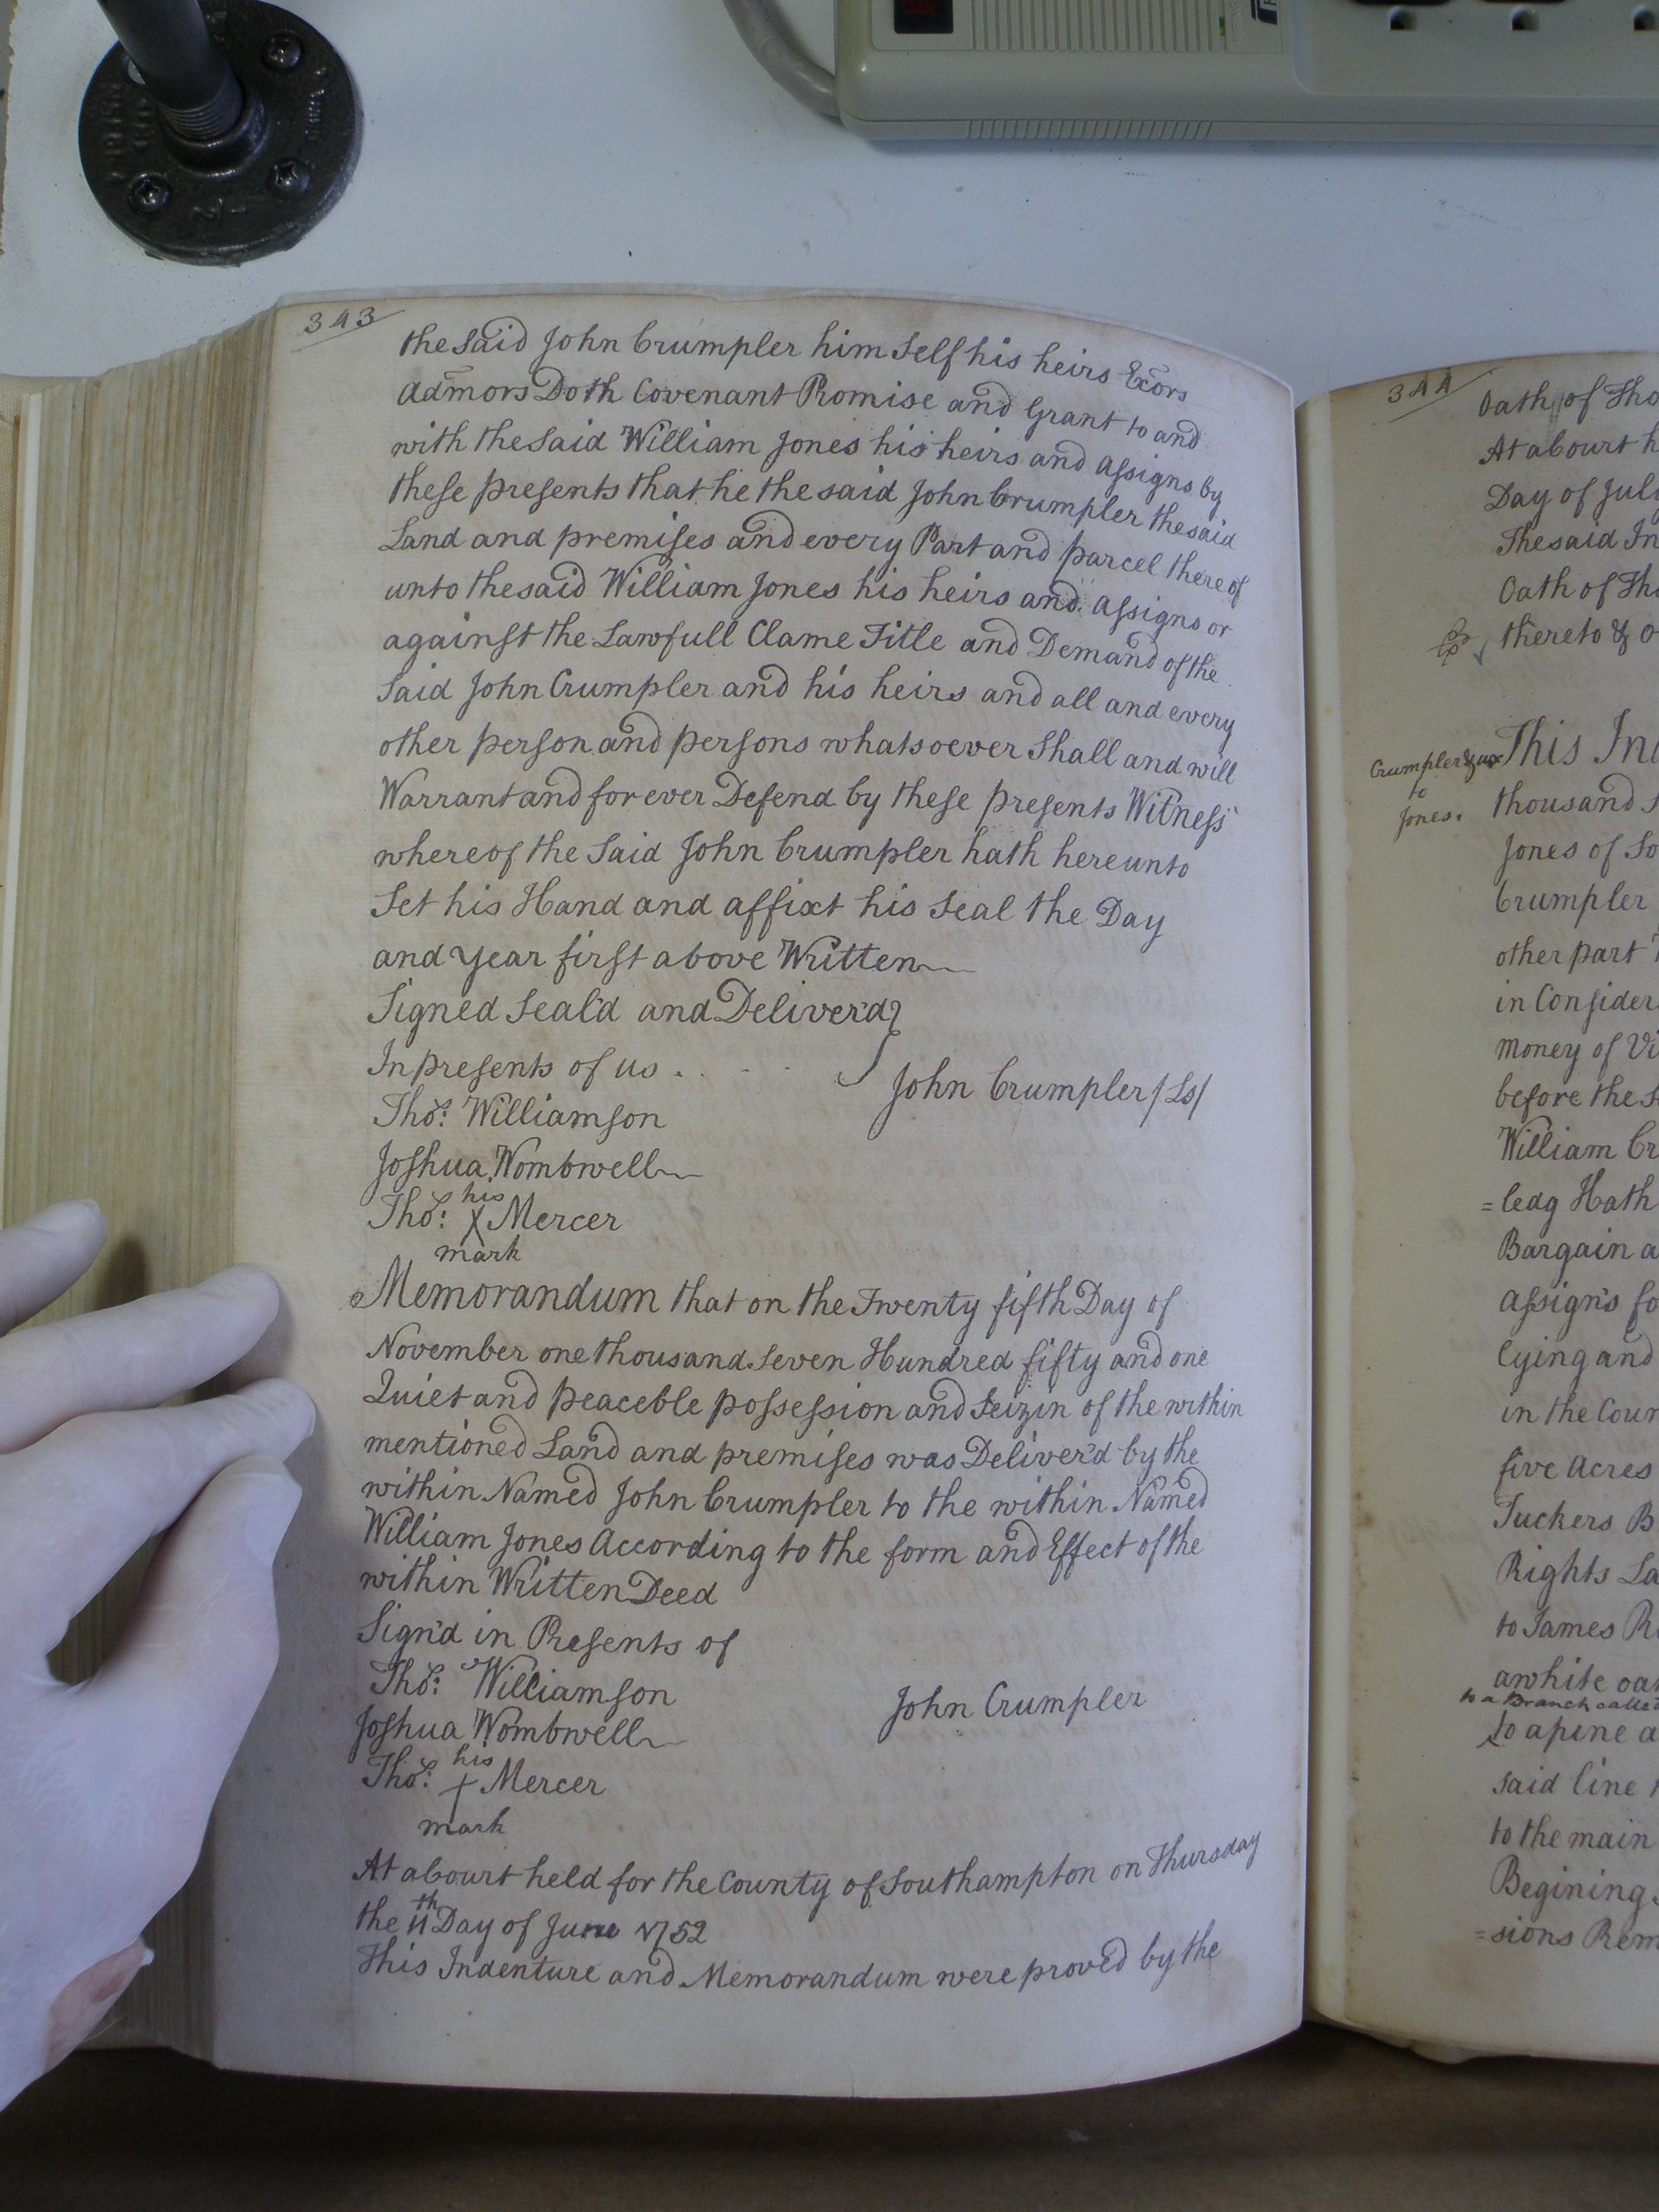 343
the Said John Crumpler him Self his heirs Exors
Admors Doth Covenant Promise and Grant to and
with the Said William Jones his heirs and assigns by
these presents that he the said John Crumpler the said
Land and premises and every Part and parcel there of
unto the said William Jones his heirs and assigns or
against the Lawfull Clame Title and Demand of the
Said John Crumpler and his heirs and all and every
other person and persons whatsoever Shall and will
Warrant and for ever Defend by these presents Witness
whereof the Said John Crumpler hath hereunto
Set his Hand and affixt his Seal the Day
and Year first above Written
Signed Seal'd and Deliver'd
In presents of us
John Crumpler /Ls/
Thos: Williamson
Joshua Wombwell
his
Thos: X Mercer
mark
Memorandum that on the Twenty fifth Day of
November one thousand Seven Hundred fifty and one
Quiet and peaceble possession and Seizin of the within
mentioned Land and premises was Deliver'd by the
within Named John Crumpler to the within Named
William Jones According to the form and Effect of the
within Written Deed
Sign'd in Presents of
Thos: Williamson
John Crumpler
Joshua Wombwell
his
Thos: X Mercer
mark
At a Court held for the County of Southampton on Thursday
the 11th Day of June 1752
This Indenture and Memorandum were proved by the
344
Oath of Tho
At a Court h
Day of July
The said In
Oath of Tho
thereto & o
Crumpler & ux
to
Jones.
This Ind
thousand S
Jones of So
Crumpler
other part
in Consider
money of Vi
before the S
William Cr
=ledg Hath
Bargain a
assigns fo
lying and
in the Coun
five Acres
Tuckers B
Rights La
to James Ri
a white oak
to a Branch called
to a pine a
said line
to the main
Begining
=sions Rem